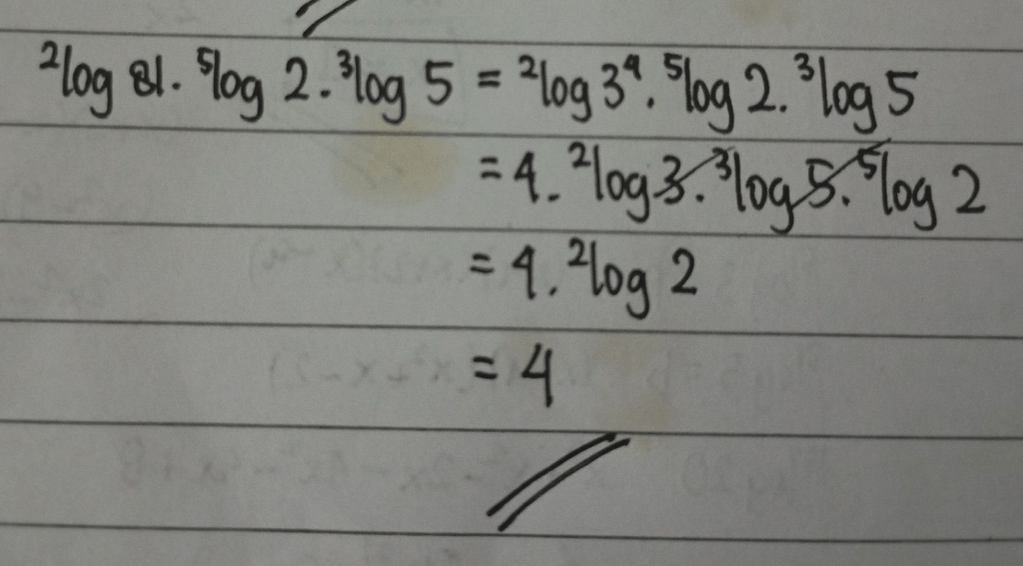 ²log 81 . ⁵log 2 . ³log 5 = ²log 3⁴ . ⁵log 2 . ³log 5
= 4 . ²log 3 . ³log 5 . ⁵log 2
= 4 . ²log 2
= 4